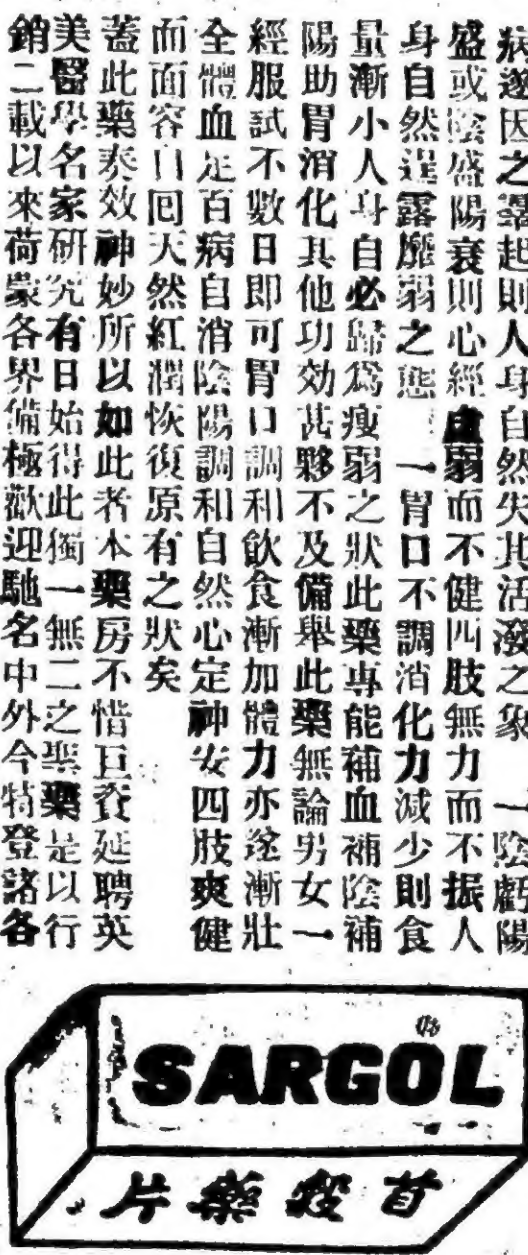 病遂因之叢起則人身自然失其活潑之象　一陰虧陽
盛或陰盛陽衰則心經虛弱而不健四肢無力而不振人
身自然逞露靡弱之態　一胃口不調消化力減少則食
量漸小人身自必歸為瘦弱之狀此藥專能補血補陰補
陽助胃消化其他功効甚夥不及備舉此藥無論男女一
經服試不數日即可胃口調和飲食漸加體力亦遂漸壯
全體血足百病自消陰陽調和自然心定神安四肢爽健
而面容日回天然紅潤恢復原有之狀矣
蓋此藥奏效神妙所以如此者本藥房不惜巨資延聘英
美醫學名家研究有日始得此獨一無二之聖藥是以行
銷二載以來荷蒙各界備極歡迎馳名中外今特登諸各
SARGOL
片藥榖首